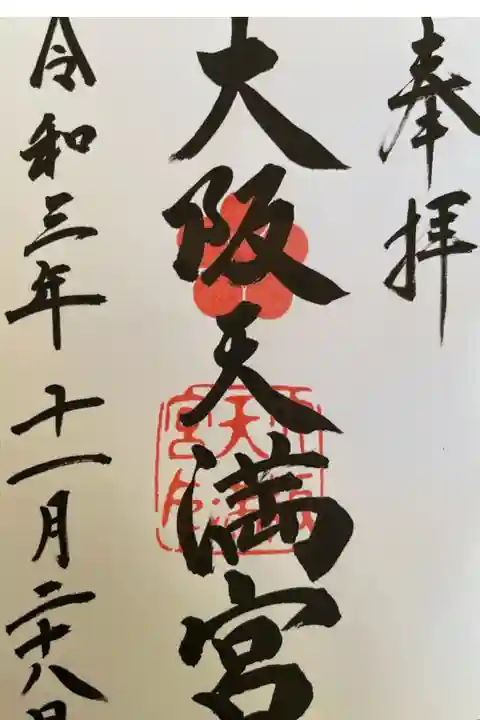 奉拝
大阪天満宮
令和三年十一月二十八日